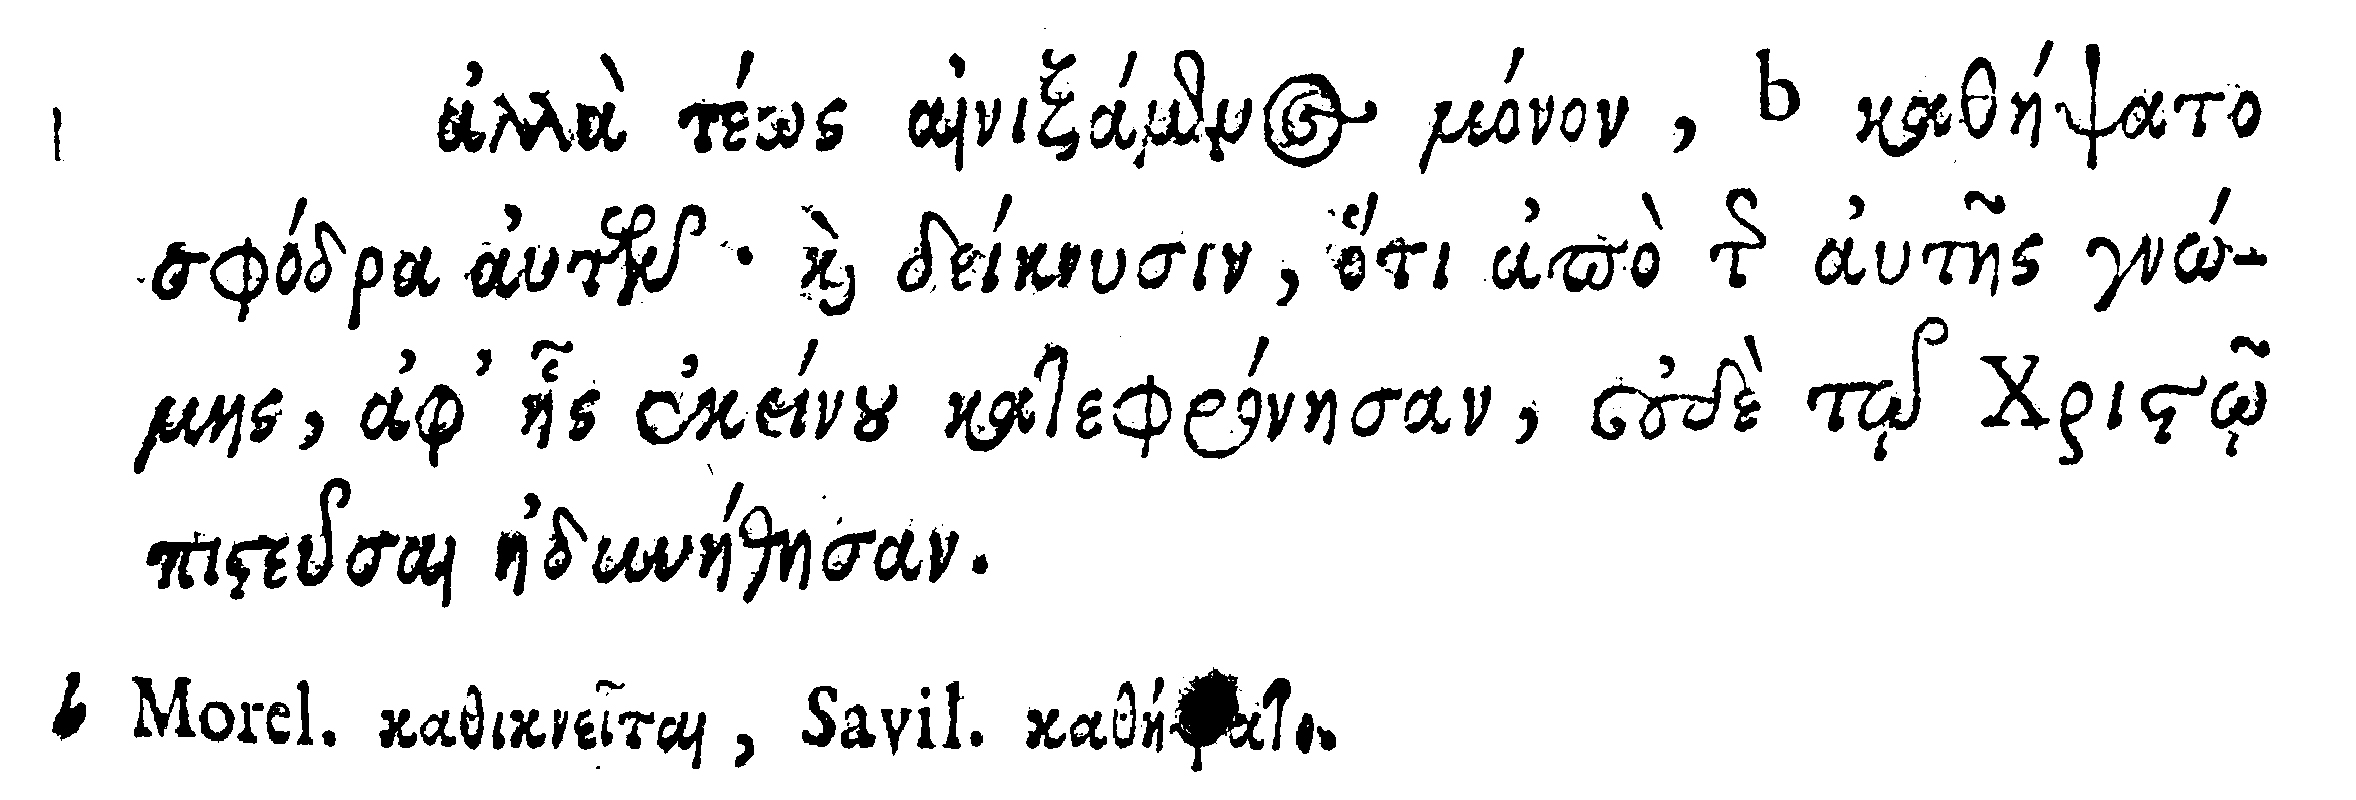 ἀλλὰ τέως αἰνιξάμενος μόνον, b καθήψατο
σφόδρα αὐτῶν· καὶ δείκνυσιν, ὅτι ἀπὸ τῆς αὐτῆς γνώ-
μης, ἀφ' ἧς ἐκείνου κατεφρόνησαν, οὐδὲ τῷ Χριστῷ
πιστεῦσαι ἠδυνήθησαν.
b Morel. καθικνεῖται, Savil. καθήψατο.